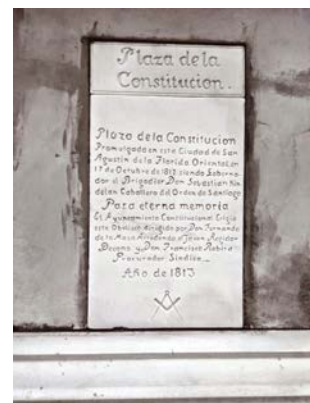 Plaza de la
Constitucion.
Plaza de la Constitucion
Promulgada en esta Ciudad de San
Agustin de la Florida Oriental en
17 de Octubre de 1812 siendo Goberna-
dor el Brigadier Don Sebastian Kin
delan Caballero del Orden de Santiago
Para eterna memoria
El Ayuntamiento Constitucional Erigio
este Obelisco dirigido por Don Fernando
de la Maza Arredondo el Joven Regidor
Decano y Don Francisco Robira
Procurador Sindico
Año de 1813